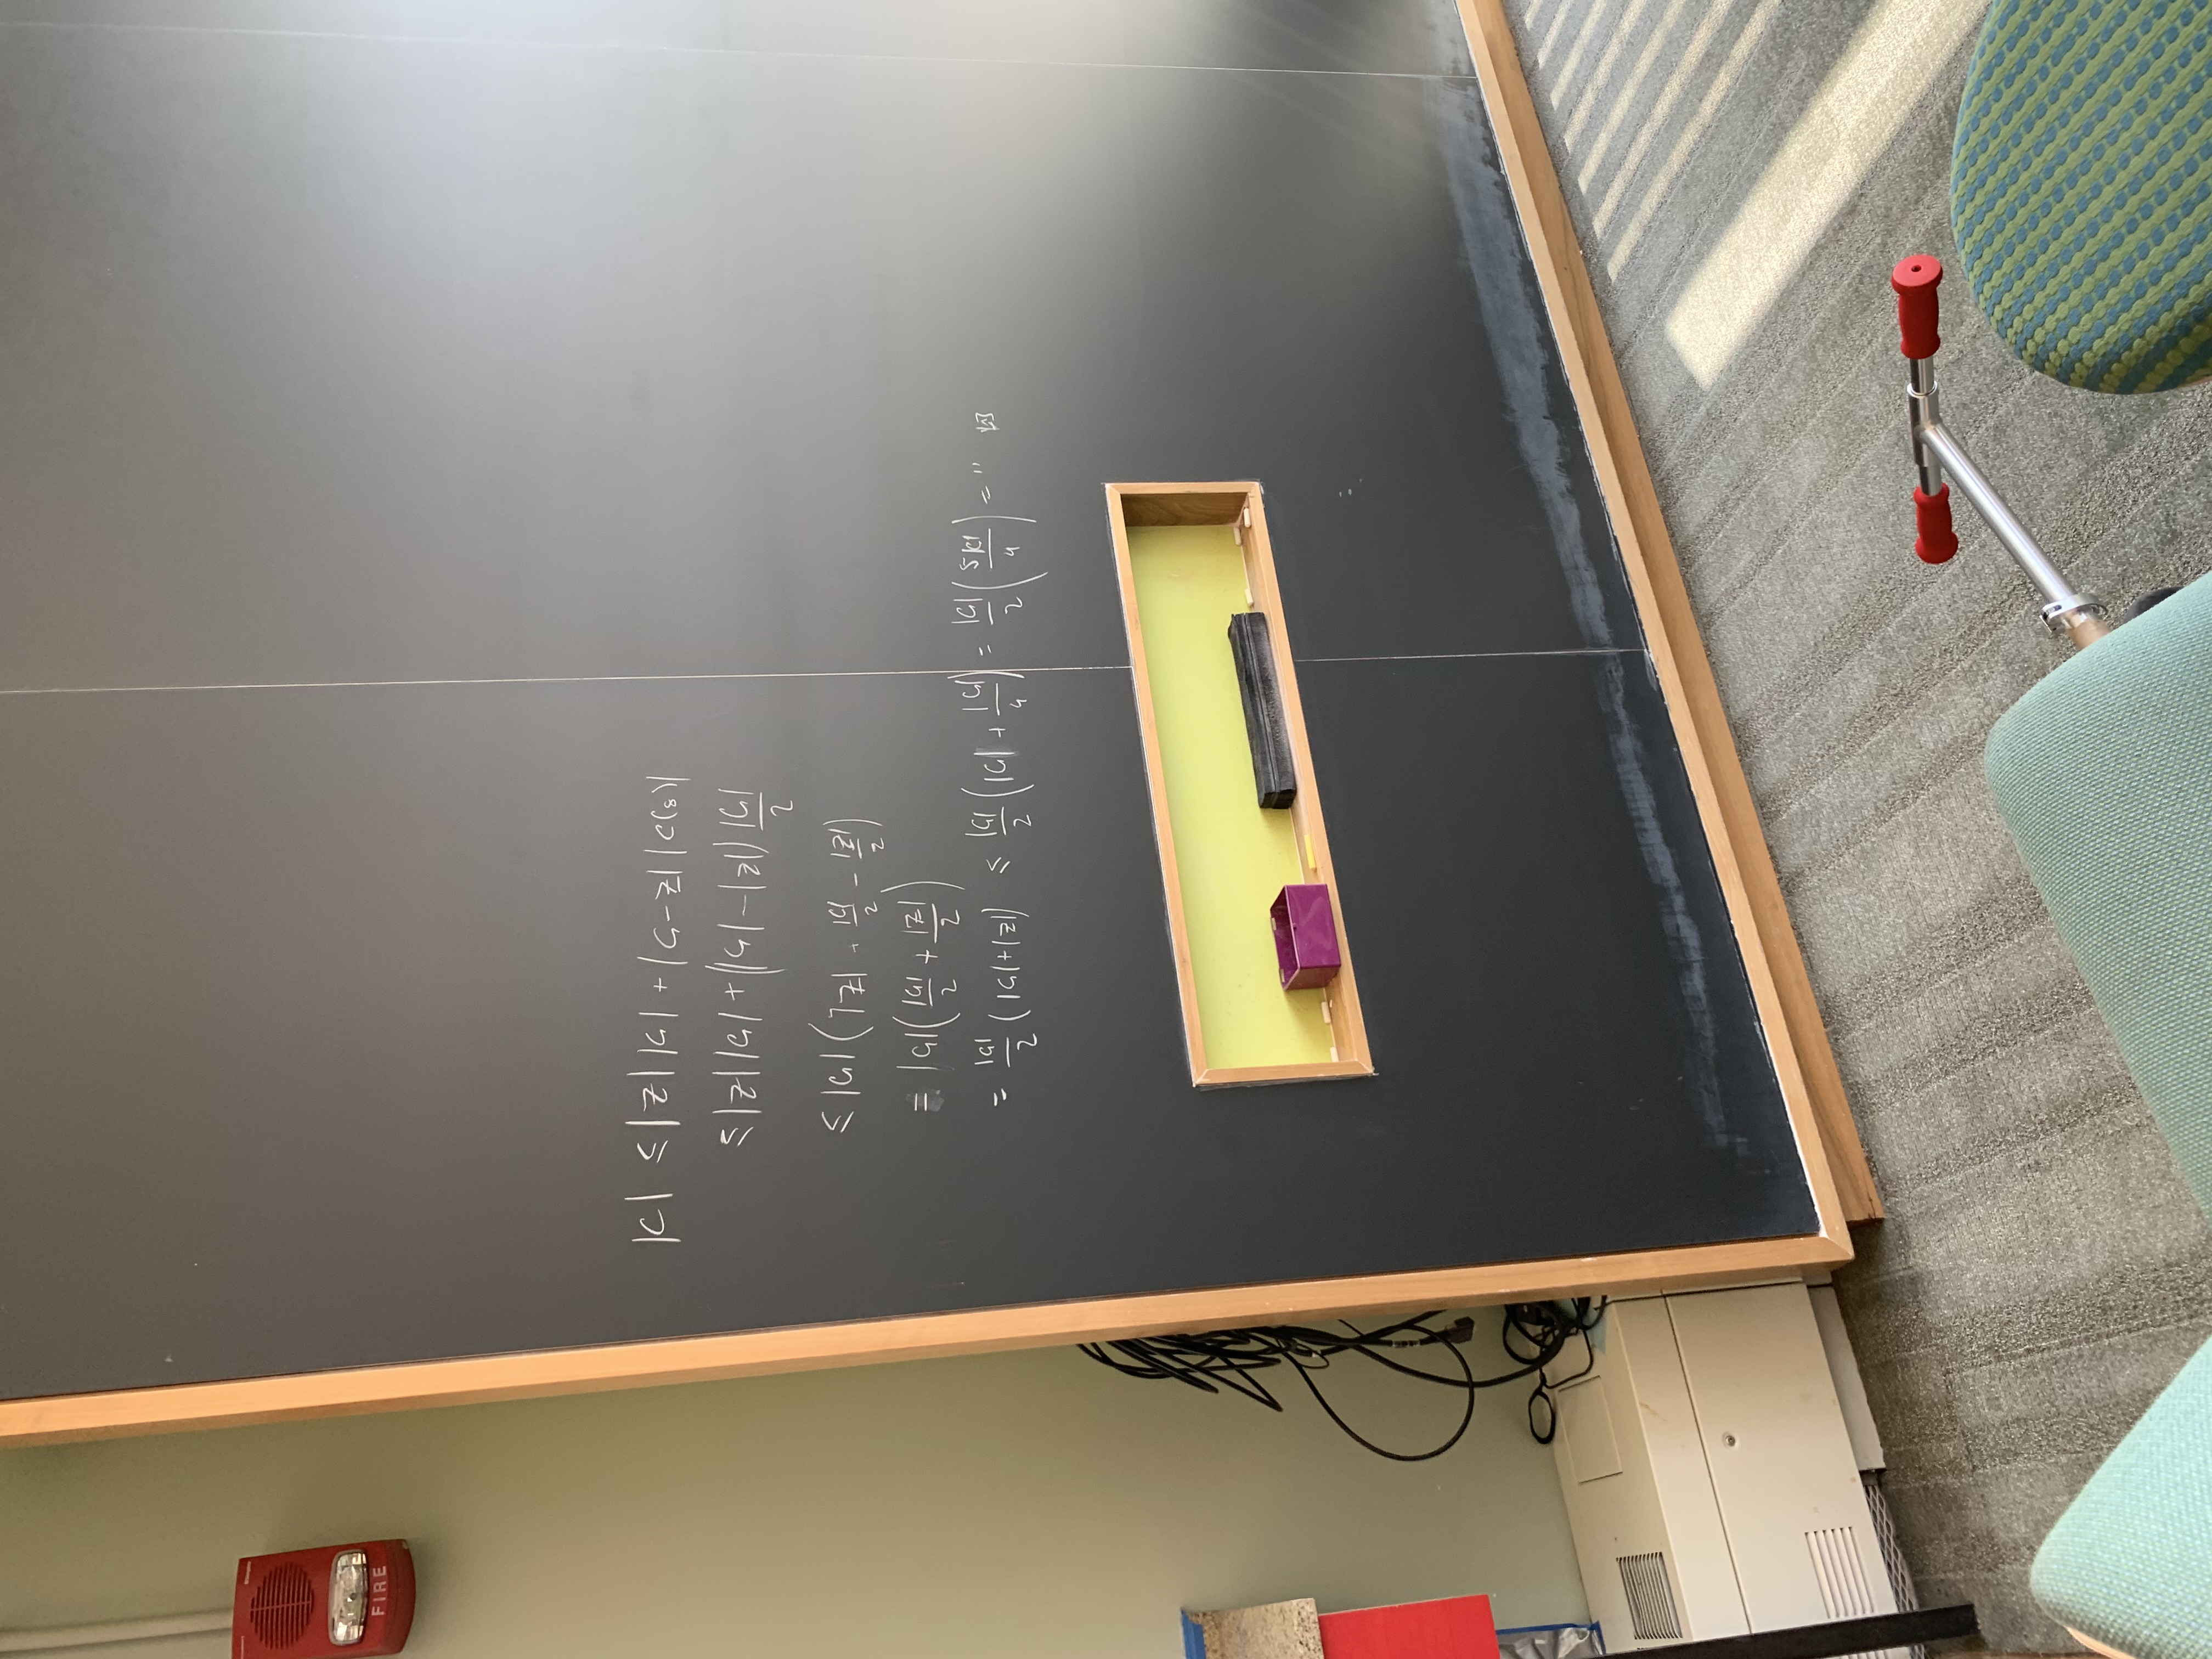 FIRE
|C| ≤ |Z| |G| + |G-Z| |C(g)|
≤ |Z| |G| + (|G| - |Z|) |G|/2
≤ |G| (|Z| + |G|/2 - |Z|/2)
= |G| (|G|/2 + |Z|/2)
= |G|/2 (|G| + |Z|) ≤ |G|/2 (|G| + |G|/4) = |G|/2 (5|G|/4) = "